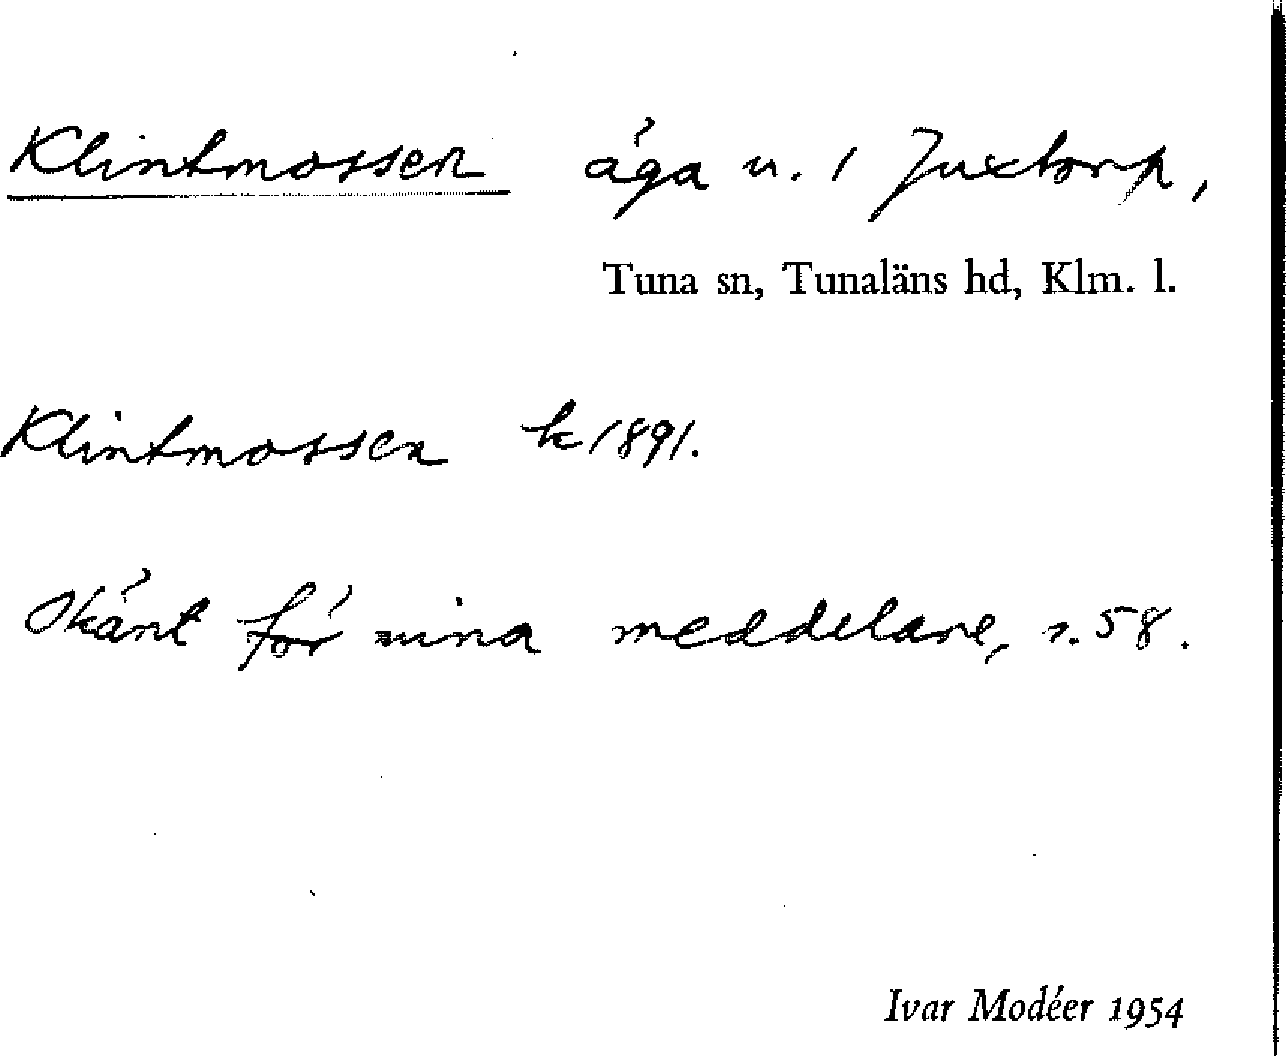 Klintmossen äga u. 1 Juxtorp,
Tuna sn, Tunaläns hd, Klm. l.
Klintmossen k 1891.
Okänt för mina meddelare, s. 58.
Ivar Modéer 1954